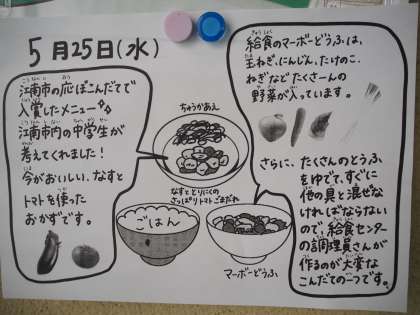 5月25日(水)
江南市の応ぼこんだてで
入賞したメニュー♪
江南市内の中学生が
考えてくれました!
今がおいしい、なすと
トマトを使った
おかずです。
ちゅうかあえ
なすととりにくの
さっぱりトマトごまだれ
ごはん
マーボーどうふ
給食のマーボーどうふは、
玉ねぎ、にんじん、たけのこ、
ねぎなどたくさんの
野菜が入っています。
さらに、たくさんのとうふ
をゆでて、すぐに
他の具と混ぜな
ければならない
ので、給食センター
の調理員さんが
作るのが大変な
こんだての一つです。